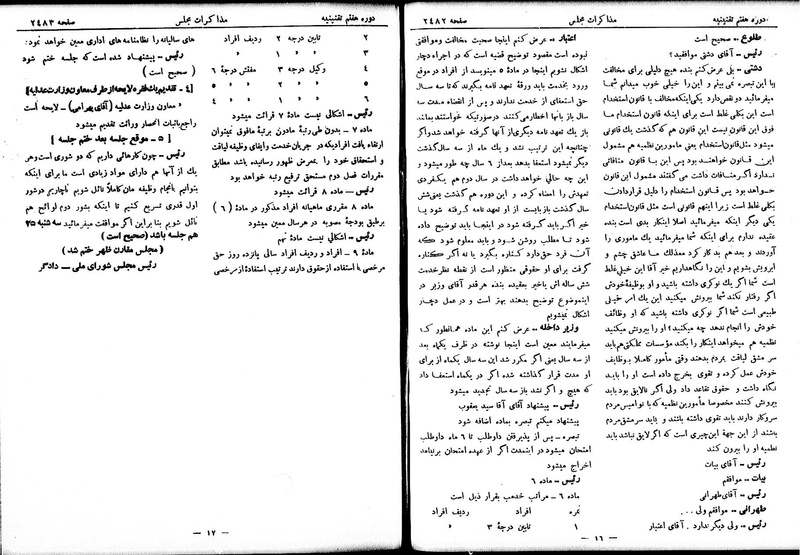 دوره هفتم تقنینیه مذاکرات مجلس صفحه ۲٤۸۲
طلوع – صحیح است
رئیس – آقای دشتی موافقید؟
دشتی – بلی عرض کنم بنده هیچ دلیلی برای مخالفت
با این تبصره نمی بینم و این را خیلی خوب میدانم شما
میفرمائید دو نقص دارد یکی اینکه مخالف با قانون استخدام
است این بکلی غلط است برای اینکه قانون استخدام ما
فوق این قانون نیست این قانون هم که گذشت یک قانونی
میشود مثل قانون استخدام یعنی مامورین نظمیه هم مشمول
این قانون خواهند بود پس این با قانون منافاتی
ندارد اگر منافات داشت می گفتند مشمول این قانون
خواهد بود پس قانون استخدام را دلیل قراردادن
بکلی غلط است زیرا اینهم قانونی است مثل قانون استخدام
یکی دیگر اینکه میفرمائید اصلا اینکار بدی است بنده
عقیده ندارم برای اینکه شما میفرمائید یک ماموری را
آوردند و بعد هم بد کار کرد معذلک ما عاشق چشم و
ابرویش بشویم و این را نگاهداریم خیر آقا این خیلی غلط
است شما اگر یک نوکری داشته باشید و او بوظیفهٔ خودش
اگر رفتار نکند شما بیرونش میکنید این یک امر خیلی
طبیعی است شما اگر نوکری داشته باشید که او وظائف
خودش را انجام ندهد چه میکنید؟ او را بیرونش میکنید
نظمیه هم میخواهد اینکار را بکند مؤسسات مملکتی هم باید
سر مشق لیاقت بمردم بدهند وقتی مأمور کاملا بوظایف
خودش عمل کرده و تقوی بخرج داده است او را باید
نگاه داشت و حقوق تقاعد داد ولی اگر نالایق بود باید
بیرونش کنند مخصوصا مأمورین نظمیه که با نوامیس مردم
سروکار دارند باید تقوی داشته باشند و باید سرمشق مردم
باشند از این جهة این چیزی است که اگر لایق نباشد باید
نظمیه او را بیرون کند
رئیس – آقای بیات
بیات – موافقم
رئیس – آقای طهرانی
طهرانی – موافقم ولی ...
رئیس – ولی دیگر ندارد . آقای اعتبار
اعتبار – عرض کنم اینجا صحبت مخالفت و موافقتی
نبوده است مقصود توضیح قضیه است که در اجراء دچار
اشکال نشویم اینجا در مادهٔ ۵ مینویسد از افراد در موقع
ورود بخدمت باید ورقهٔ تعهد نامه بگیرند که تا سه سال
حق استعفای از خدمت ندارند و پس از انقضاء مدت سه
سال باز بآنها اخطار می کنند در صورتیکه خواستند بمانند
باز یک تعهد نامه دیگری از آنها گرفته خواهد شد و اگر
چنانچه این ترتیب نشد و یک ماه از سه سال گذشت
دیگر نمیشود استعفا بدهد بعد از ٦ سال چه طور میشود و
این چه حالی خواهد داشت در سال دوم هم یک فردی
تعهدش را امضاء کرده و این دوره هم گذشت یعنی شش
سال گذشت باز بایست از او تعهد نامه گرفته شود یا
خیر اگر باید گرفته شود در اینجا باید توضیح داده
شود تا مطلب روشن شود و باید معلوم شود که
آن فرد حق دارد کناره بگیرد یا نه اگر کناره
گرفت برای او حقوقی منظور است از نقطه نظر خدمت
شش ساله اش یا خیر بعقیده بنده هر قدر آقای وزیر در
اینموضوع توضیح بدهند بهتر است و در عمل دچار
اشکال نمیشویم
وزیر داخله – عرض کنم این ماده همانطور که
میفرمایند معین است اینجا نوشته در ظرف یکماه بعد
از سه سال یعنی اگر مکرر شد این سه سال یکماه از برای
او مدت قرار گذاشته شده اگر در یکماه استعفا داد
که هیچ و اگر نشد باز سه سال تجدید میشود
رئیس – پیشنهاد آقای آقا سید یعقوب
پیشنهاد میکنم تبصره بماده اضافه شود
تبصره – پس از پذیرفتن داوطلب تا ٦ ماه داوطلب
امتحان میشود در اینمدت اگر از عهده امتحان برنیامد
اخراج میشود
رئیس – ماده ٦
ماده ٦ – مراتب خدمت بقرار ذیل است
نمره افراد ردیف افراد
۱ تابین درجه ۳ «
— ۱٦ —
دوره هفتم تقنینیه مذاکرات مجلس صفحه ۲٤۸۳
۲ تابین درجه ۲ ردیف افراد
۳ « « ۱ «
٤ وکیل درجه ۳ مفتش درجه ٦
۵ « « ۲ « « ۵
٦ « « ۱ « « ٤
رئیس – اشکالی نیست مادهٔ ۷ قرائت میشود
ماده ۷ – بدون طی رتبهٔ مادون برتبهٔ مافوق نمیتوان
ارتقاء یافت افرادیکه در جریان خدمت و ایفای وظیفه لیاقت
و استحقاق خود را بمعرض ظهور رسانیده باشد مطابق
مقررات فصل دوم مستحق ترفیع رتبه خواهد بود
رئیس – ماده ۸ قرائت میشود
ماده ۸ مقرری ماهیانه افراد مذکور در مادهٔ ( ٦ )
برطبق بودجهٔ مصوبه در هر سال معین میشود
رئیس – اشکالی نیست مادهٔ نهم
ماده ۹ – افراد و ردیف افراد سالی پانزده روز حق
مرخصی با استفاده از حقوق دارند ترتیب استفادهٔ از مرخصی
های سالیانه را نظامنامه های اداری معین خواهد نمود.
رئیس – پیشنهاد شده است که جلسه ختم شود
( صحیح است )
[ ٤ – تقدیم یک فقره لایحه از طرف معاون وزارت عدلیه ]
معاون وزارت عدلیه (آقای بهرامی) – لایحه است
راجع باثبات انحصار وراثت تقدیم میشود
[ ۵ – موقع جلسه بعد ختم جلسه ]
رئیس – چون کارهائی داریم که دو شوری است و هر
یک از آنها هم دارای مواد زیادی است ما برای اینکه
بتوانیم بانجام وظیفه مان کاملاً نائل شویم ناچاریم در شور
اول قدری تسریع کنیم تا اینکه بشور دوم لوایح هم
نائل شویم بنا بر این اگر موافقت میفرمائید سه شنبه ۲۵
هم جلسه باشد (صحیح است )
( مجلس مقارن ظهر ختم شد )
رئیس مجلس شورای ملی – دادگر
— ۱۷ —